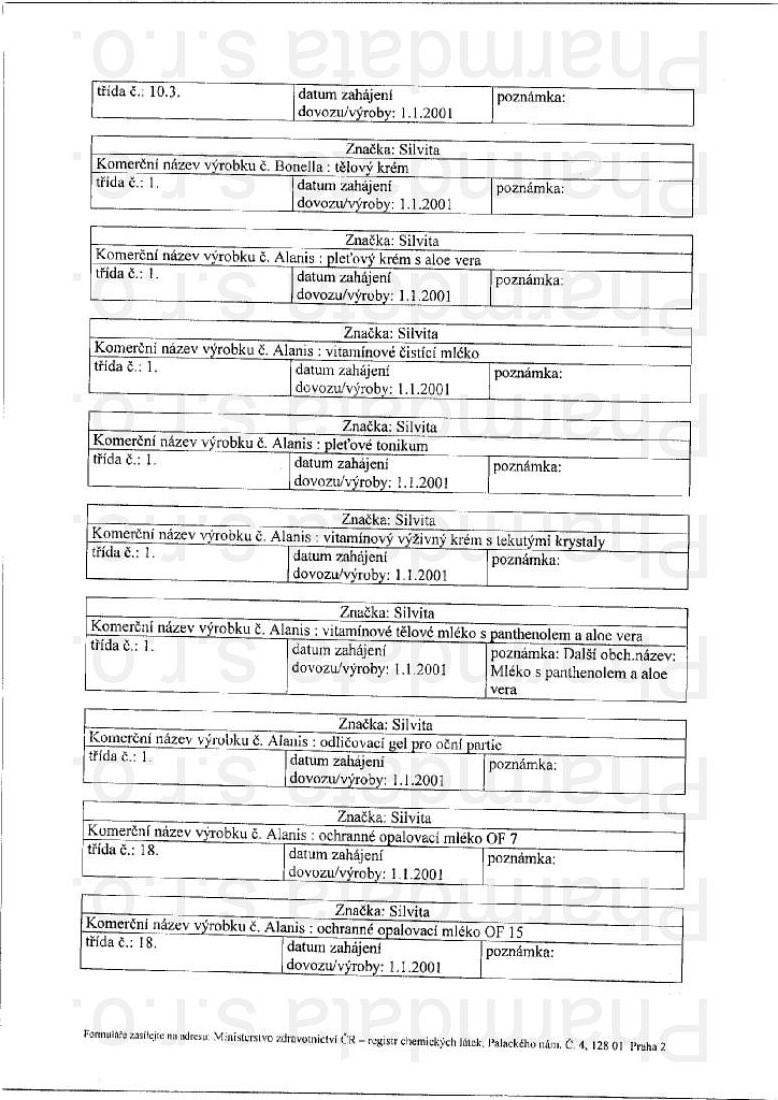 třída č.: 10.3.
datum zahájení
dovozu/výroby: 1.1.2001
poznámka:
Značka: Silvita
Komerční název výrobku č. Bonella : tělový krém
třída č.: 1.
datum zahájení
dovozu/výroby: 1.1.2001
poznámka:
Značka: Silvita
Komerční název výrobku č. Alanis : pleťový krém s aloe vera
třída č.: 1.
datum zahájení
dovozu/výroby: 1.1.2001
poznámka:
Značka: Silvita
Komerční název výrobku č. Alanis : vitamínové čistící mléko
třída č.: 1.
datum zahájení
dovozu/výroby: 1.1.2001
poznámka:
Značka: Silvita
Komerční název výrobku č. Alanis : pleťové tonikum
třída č.: 1.
datum zahájení
dovozu/výroby: 1.1.2001
poznámka:
Značka: Silvita
Komerční název výrobku č. Alanis : vitamínový výživný krém s tekutými krystaly
třída č.: 1.
datum zahájení
dovozu/výroby: 1.1.2001
poznámka:
Značka: Silvita
Komerční název výrobku č. Alanis : vitamínové tělové mléko s panthenolem a aloe vera
třída č.: 1.
datum zahájení
dovozu/výroby: 1.1.2001
poznámka: Další obch.název:
Mléko s panthenolem a aloe
vera
Značka: Silvita
Komerční název výrobku č. Alanis : odličovací gel pro oční partie
třída č.: 1.
datum zahájení
dovozu/výroby: 1.1.2001
poznámka:
Značka: Silvita
Komerční název výrobku č. Alanis : ochranné opalovací mléko OF 7
třída č.: 18.
datum zahájení
dovozu/výroby: 1.1.2001
poznámka:
Značka: Silvita
Komerční název výrobku č. Alanis : ochranné opalovací mléko OF 15
třída č.: 18.
datum zahájení
dovozu/výroby: 1.1.2001
poznámka:
Formuláře zasílejte na adresu: Ministerstvo zdravotnictví ČR – registr chemických látek, Palackého nám. Č. 4, 128 01 Praha 2
Pharmdata s.r.o.